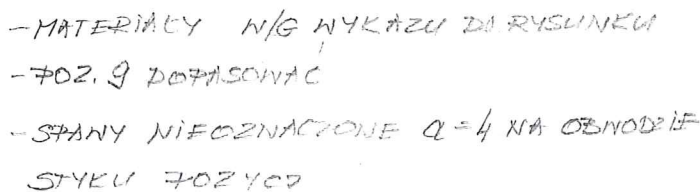 - MATERIAŁY W/G WYKAZU DO RYSUNKU
- POZ. 9 DOPASOWAĆ
- SPAWY NIEOZNACZONE a = 4 NA OBWODZIE
STYKU POZYCJI